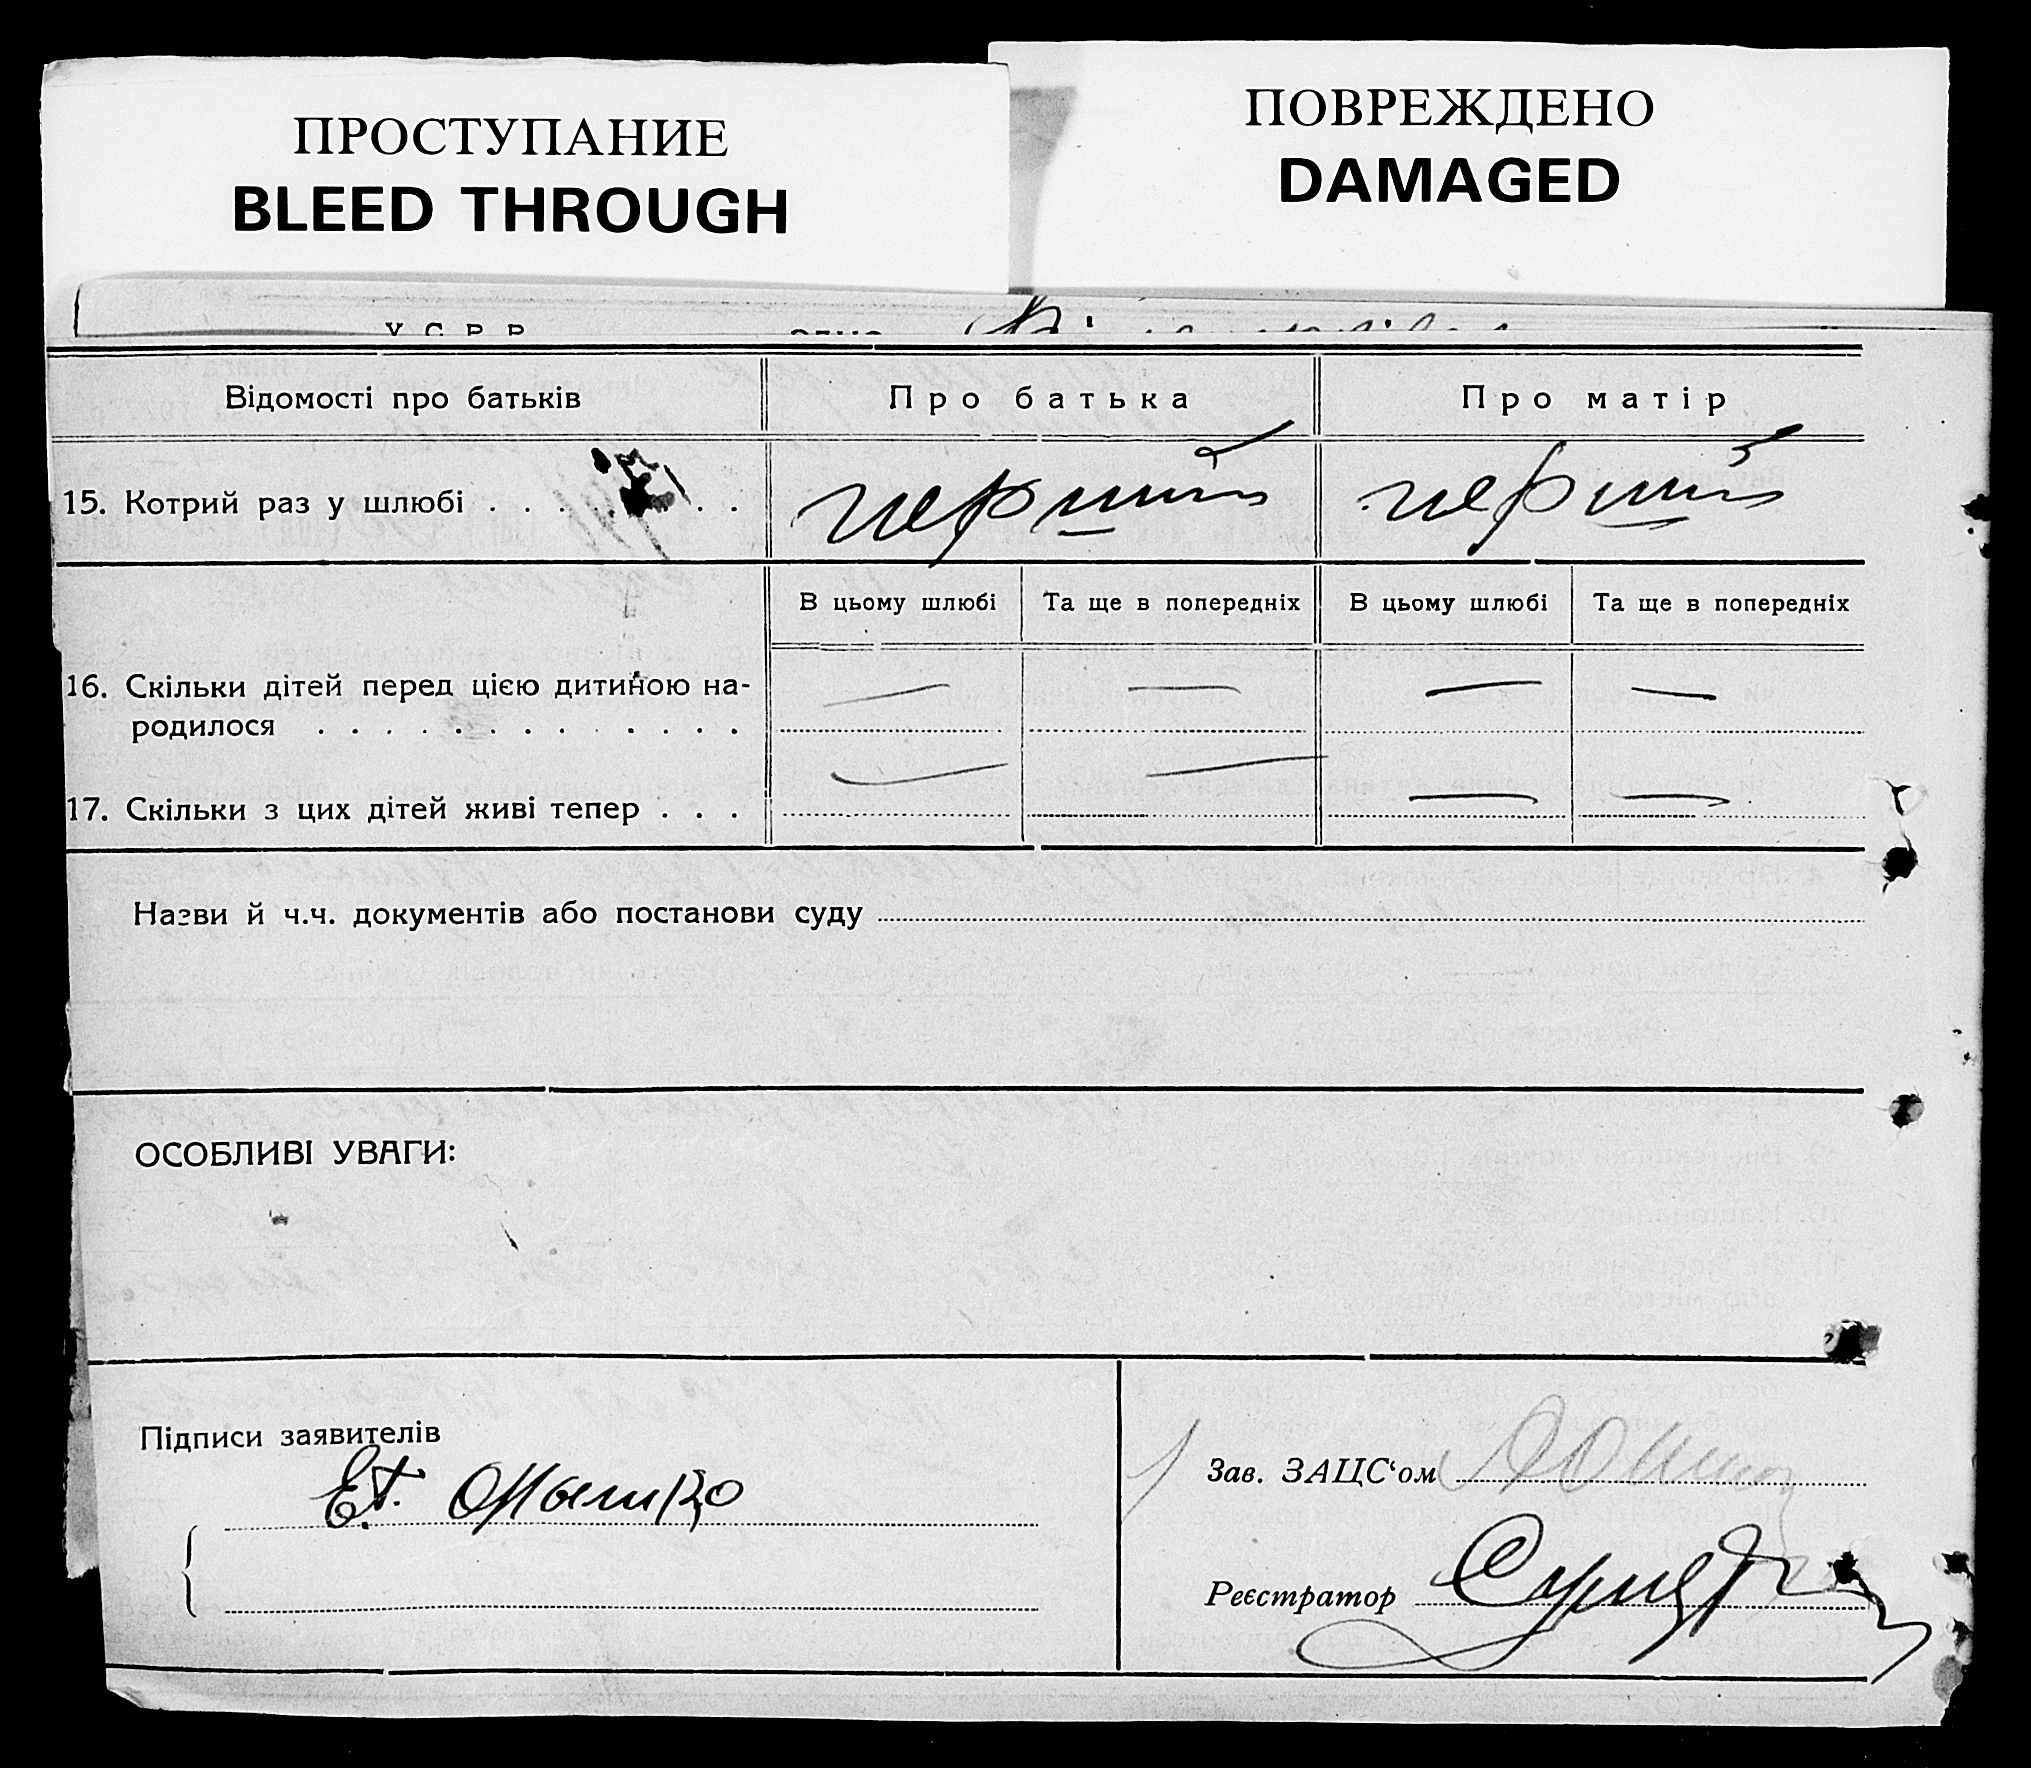 ПРОСТУПАНИЕ
BLEED THROUGH
ПОВРЕЖДЕНО
DAMAGED
У.С.Р.Р.
Відомості про батьків
Про батька
Про матір
15. Котрий раз у шлюбі . . . . . .
перший
перший
В цьому шлюбі
Та ще в попередніх
В цьому шлюбі
Та ще в попередніх
16. Скільки дітей перед цією дитиною на-
— — — —
родилося . . . . . . . . . . . . .
17. Скільки з цих дітей живі тепер . . .
— — — —
Назви й ч.ч. документів або постанови суду
ОСОБЛИВІ УВАГИ:
Підписи заявителів
Зав. ЗАЦС‘ом
Реєстратор